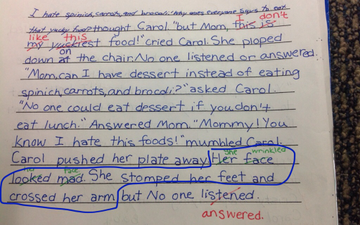 I hate spinich, carrots, and brocoli. Why does everyone
thought Carol. "but Mom, this is I don't
like this
my yuckiest food!" cried Carol. She ploped
down on at the chair. No one listened or answered.
"Mom, can I have dessert instead of eating
spinich, carrots, and brocoli?" asked Carol.
"No one could eat dessert if you don't
eat lunch." Answered Mom. "Mommy! You
know I hate this foods!" mumbled Carol.
Carol pushed her plate away. Her face She wrinkled
looked mad. her face She stomped her feet and
crossed her arm but No one listened.
answered.